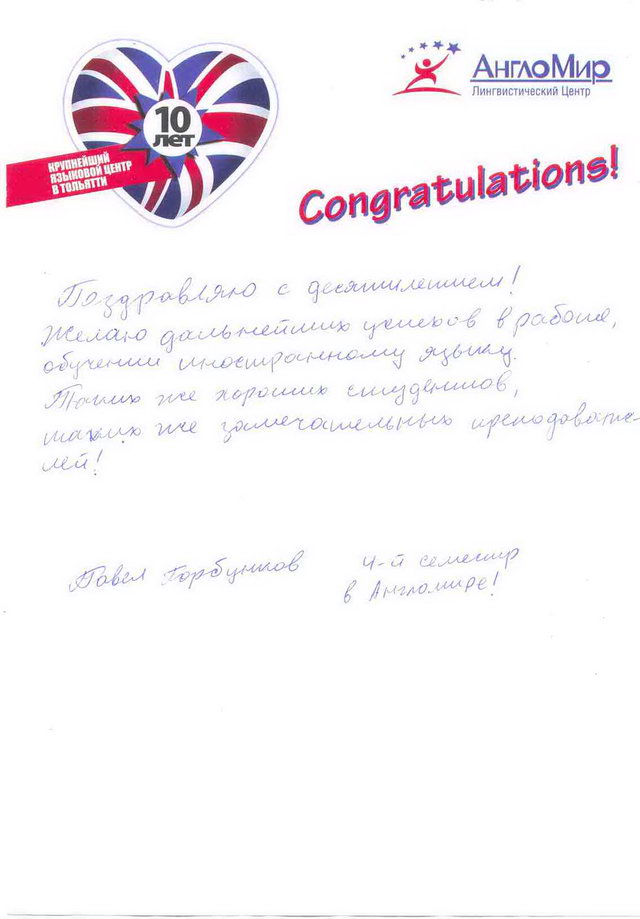 10
лет
КРУПНЕЙШИЙ
ЯЗЫКОВОЙ ЦЕНТР
В ТОЛЬЯТТИ
АнглоМир
Лингвистический Центр
Congratulations!
Поздравляю с десятилетием!
Желаю дальнейших успехов в работе,
обучении иностранному языку.
Таких же хороших студентов,
таких же замечательных преподавате-
лей!
Павел Горбунков 4-й семестр
в Англомире!